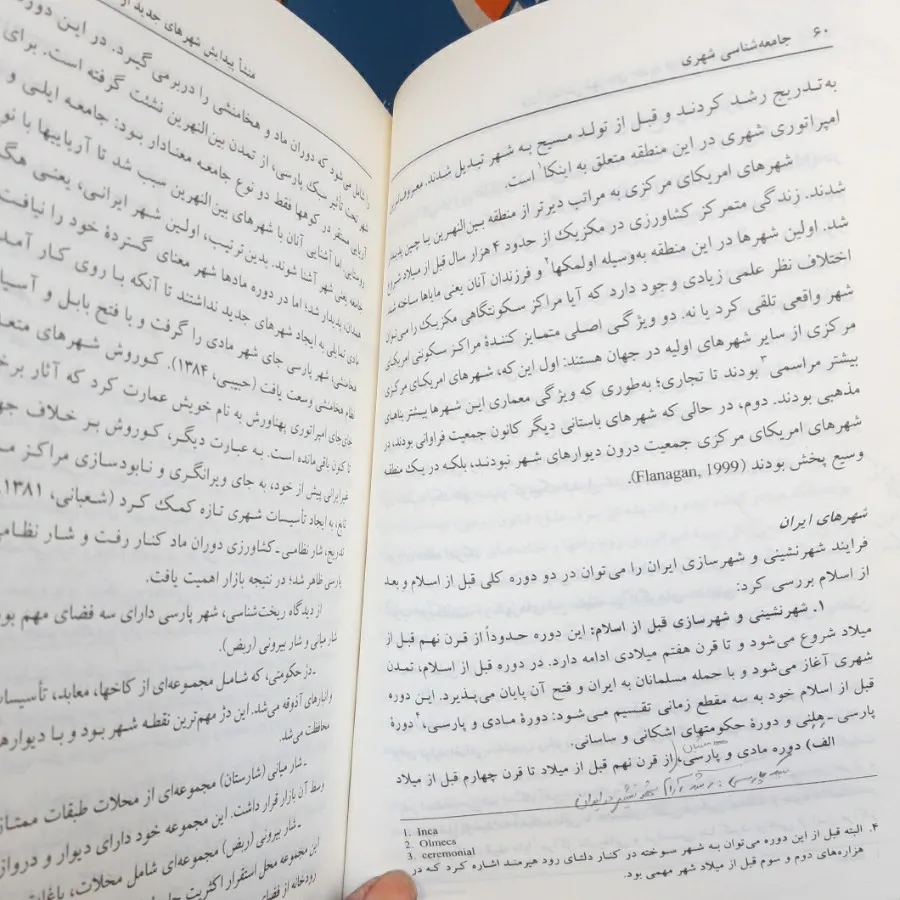 ۶۰ جامعه‌شناسی شهری
به‌تدریج رشد کردند و قبل از تولد مسیح به شهر تبدیل شدند. معروف‌ترین
امپراتوری شهری در این منطقه متعلق به اینکا۱ است.
شهرهای امریکای مرکزی به مراتب دیرتر از منطقه بین‌النهرین یا چین پدیدار
شدند. زندگی متمرکز کشاورزی در مکزیک از حدود ۴ هزار سال قبل از میلاد شروع
شد. اولین شهرها در این منطقه به‌وسیله اولمکها۲ و فرزندان آنان یعنی مایاها ساخته شد.
اختلاف نظر علمی زیادی وجود دارد که آیا مراکز سکونتگاهی مکزیک را می‌توان
شهر واقعی تلقی کرد یا نه. دو ویژگی اصلی متمایز کنندهٔ مراکز سکونتی امریکای
مرکزی از سایر شهرهای اولیه در جهان هستند: اول این که، شهرهای امریکای مرکزی
بیشتر مراسمی۳ بودند تا تجاری؛ به‌طوری که ویژگی معماری این شهرها بیشتر بناهای
مذهبی بودند. دوم، در حالی که شهرهای باستانی دیگر کانون جمعیت فراوانی بودند، در
شهرهای امریکای مرکزی جمعیت درون دیوارهای شهر نبودند، بلکه در یک منطقه
وسیع پخش بودند (Flanagan, 1999).
شهرهای ایران
فرایند شهرنشینی و شهرسازی ایران را می‌توان در دو دوره کلی قبل از اسلام و بعد
از اسلام بررسی کرد:
۱. شهرنشینی و شهرسازی قبل از اسلام: این دوره حدوداً از قرن نهم قبل از
میلاد شروع می‌شود و تا قرن هفتم میلادی ادامه دارد. در دوره قبل از اسلام، تمدن
شهری آغاز می‌شود و با حمله مسلمانان به ایران و فتح آن پایان می‌پذیرد. این دوره
قبل از اسلام خود به سه مقطع زمانی تقسیم می‌شود: دورهٔ مادی و پارسی،۴ دورهٔ
پارسی ـ هلنی و دورهٔ حکومتهای اشکانی و ساسانی.
الف) دوره مادی و پارسی، از قرن نهم قبل از میلاد تا قرن چهارم قبل از میلاد
1. Inca
2. Olmecs
3. ceremonial
۴. البته قبل از این دوره می‌توان به شهر سوخته در کنار دلتای رود هیرمند اشاره کرد که در
هزاره‌های دوم و سوم قبل از میلاد شهر مهمی بود.
منشأ پیدایش شهرهای جدید
را شامل می‌شود که دوران ماد و هخامنشی را دربرمی گیرد. در این دوره
شهر تحت تأثیر سبک پارسی، از تمدن بین‌النهرین نشئت گرفته است. برای
آریایی مستقر در کوهها فقط دو نوع جامعه معنادار بود: جامعه ایلی و
روستایی. اما آشنایی آنان با شهرهای بین‌النهرین سبب شد تا آریاییها با
جامعه یعنی شهر آشنا شوند. بدین‌ترتیب، اولین شهر ایرانی، یعنی
همدان، پدیدار شد؛ اما در دوره مادها شهر معنای گستردهٔ خود را نیافت
مادی تمایلی به ایجاد شهرهای جدید نداشتند تا آنکه با روی کار
هخامنشی، شهر پارسی جای شهر مادی را گرفت و با فتح بابل و
نظام هخامنشی وسعت یافت (حبیبی، ۱۳۸۴). کوروش شهرهای
جای‌جای امپراتوری پهناورش به نام خویش عمارت کرد که آثار
تاکنون باقی مانده است. به عبارت دیگر، کوروش بر خلاف
غیر ایرانی پیش از خود، به جای ویرانگری و نابودسازی مراکز
تابع، به ایجاد تأسیسات شهری تازه کمک کرد (شعبانی، ۱۳۸۱
تدریج، شار نظامی ـ کشاورزی دوران ماد کنار رفت و شار
پارسی ظاهر شد؛ در نتیجه بازار اهمیت یافت.
از دیدگاه ریخت‌شناسی، شهر پارسی دارای سه فضای مهم
شار میانی و شار بیرونی (ربض).
ـ دژ حکومتی، که شامل مجموعه‌ای از کاخها، معابد، تأسیسات
و انبارهای آذوقه می‌شد. این دژ مهم‌ترین نقطه شهر بود و با
محافظت می‌شد.
ـ شار میانی (شارستان) مجموعه‌ای از محلات طبقات
وسط آن بازار قرار داشت. این مجموعه خود دارای دیوار و
ـ شار بیرونی (ربض) مجموعه‌ای شامل محلات،
این مجموعه محل استقرار اکثریت
رودخانه از فضای